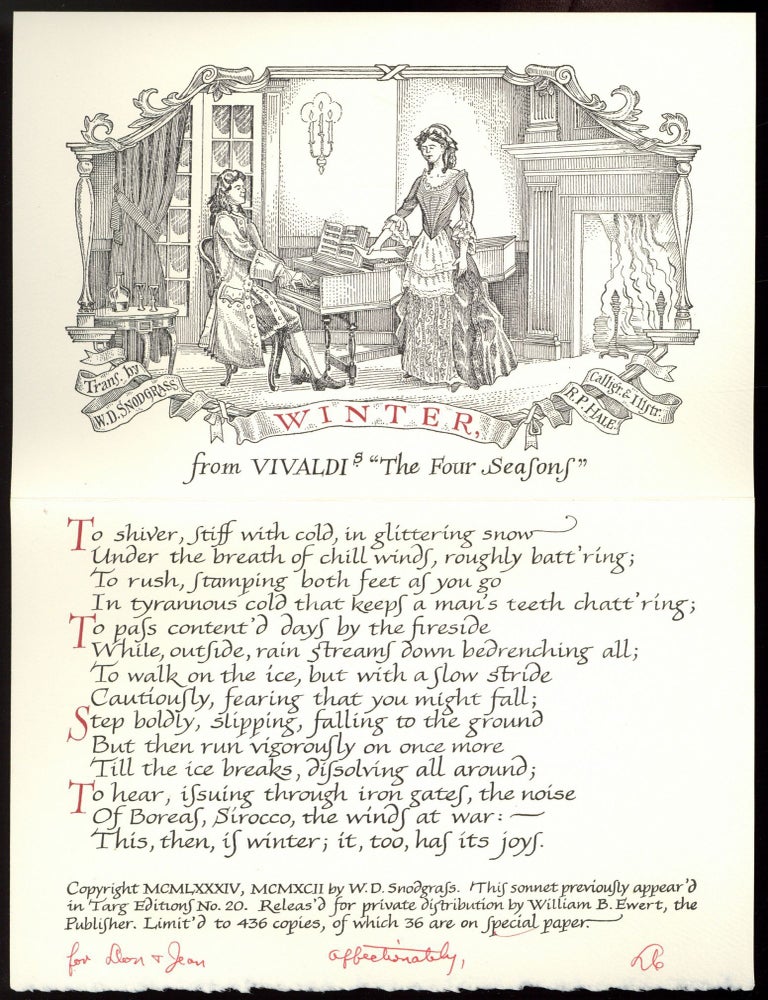 Trans. by
W. D. SNODGRASS
Calligr. & Illstr.
R. P. HALE
WINTER,
from VIVALDI'S "The Four Seaſonſ"
To shiver, ſtiff with cold, in glittering snow
Under the breath of chill windſ, roughly batt'ring;
To rush, ſtamping both feet aſ you go
In tyrannous cold that keepſ a man's teeth chatt'ring;
To paſs content'd dayſ by the fireside
While, outſide, rain ſtreamſ down bedrenching all;
To walk on the ice, but with a ſlow stride
Cautiouſly, fearing that you might fall;
Step boldly, slipping, falling to the ground
But then run vigorouſly on once more
Till the ice breaks, diſsolving all around;
To hear, iſsuing through iron gateſ, the noise
Of Boreaſ, Sirocco, the windſ at war: —
This, then, iſ winter; it, too, haſ its joyſ.
Copyright MCMLXXXIV, MCMXCII by W. D. Snodgraſs. This sonnet previouſly appear'd
in Targ Editionſ No. 20. Releas'd for private diſtribution by William B. Ewert, the
Publiſher. Limit'd to 436 copies, of which 36 are on ſpecial paper.
for Don + Jean affectionately, De